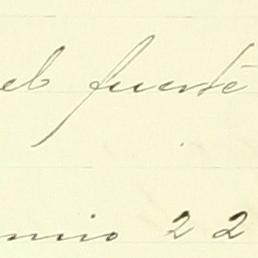 el fuerte
nio 22